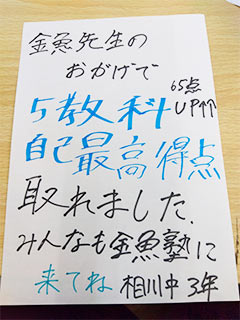 金魚先生の
おかげで
65点
UP↑↑
5教科
自己最高得点
取れました.
みんなも金魚塾に
来てね 相川中 3年